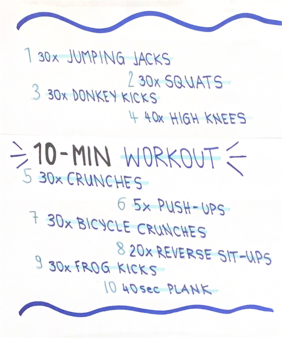 1 30x JUMPING JACKS
2 30x SQUATS
3 30x DONKEY KICKS
4 40x HIGH KNEES
10-MIN WORKOUT
5 30x CRUNCHES
6 5x PUSH-UPS
7 30x BICYCLE CRUNCHES
8 20x REVERSE SIT-UPS
9 30x FROG KICKS
10 40sec PLANK